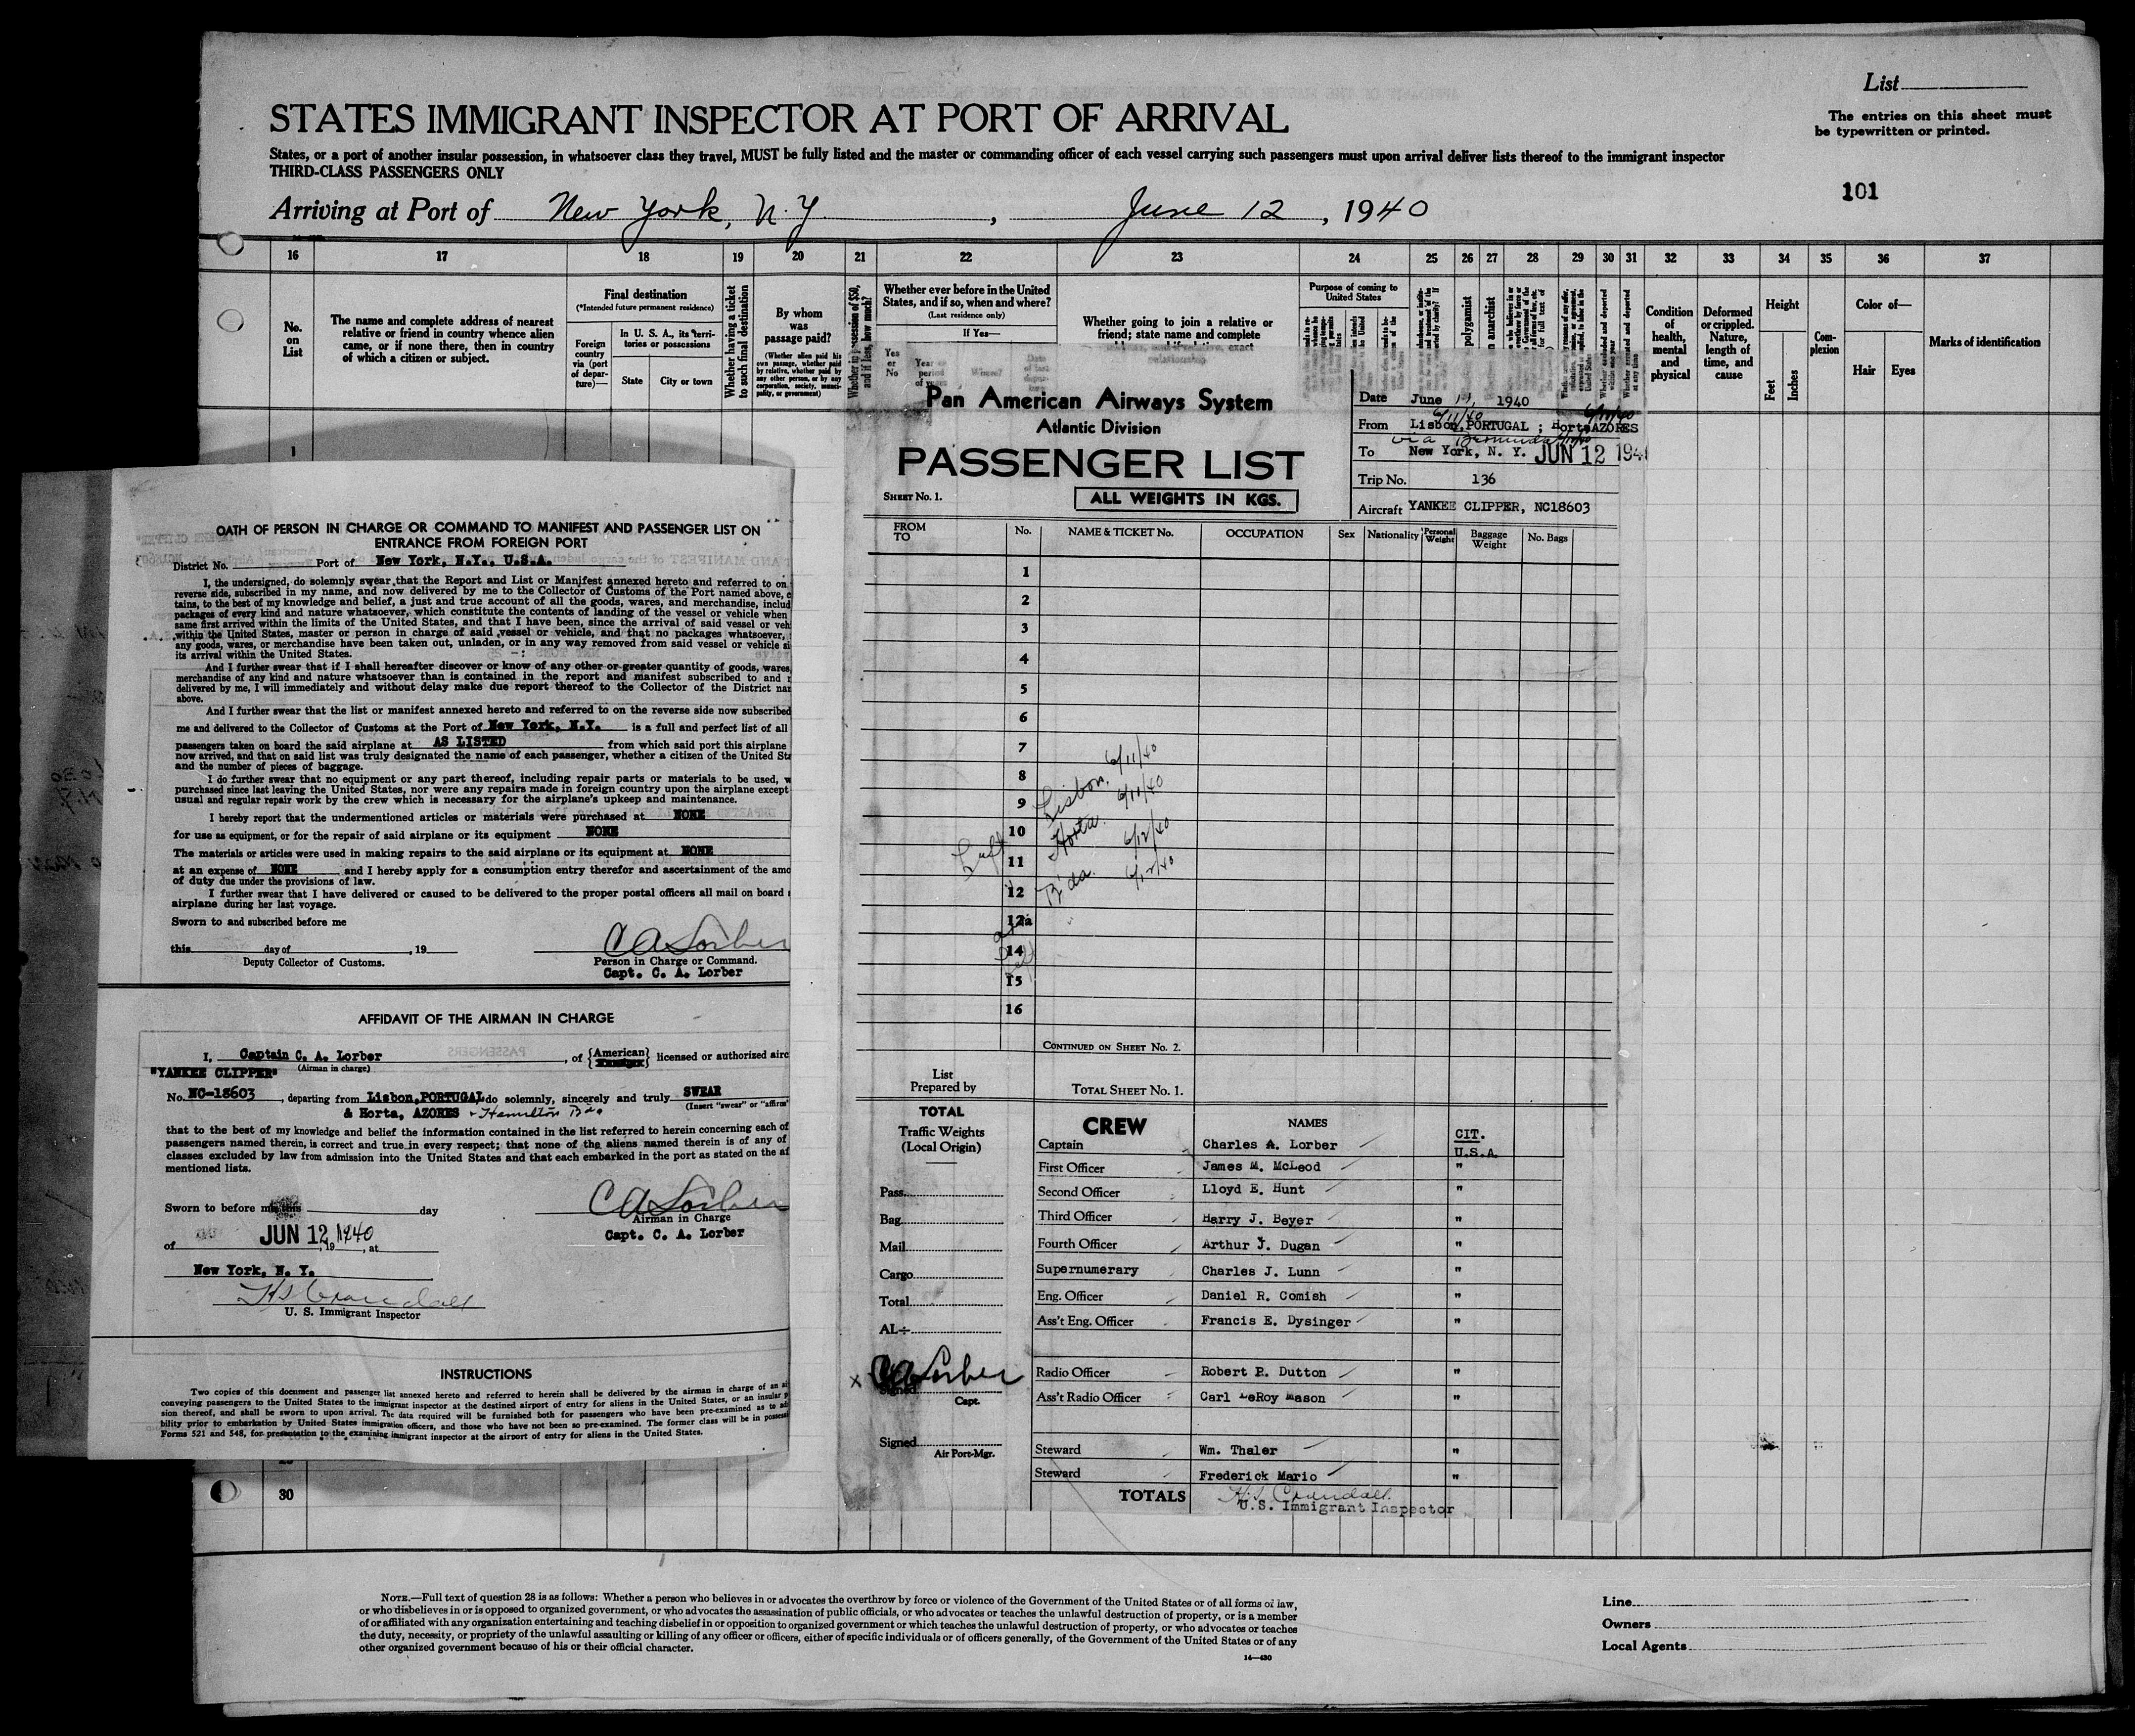 List
The entries on this sheet must
be typewritten or printed.
STATES IMMIGRANT INSPECTOR AT PORT OF ARRIVAL
States, or a port of another insular possession, in whatsoever class they travel, MUST be fully listed and the master or commanding officer of each vessel carrying such passengers must upon arrival deliver lists thereof to the immigrant inspector
THIRD-CLASS PASSENGERS ONLY
101
Arriving at Port of New York, N.Y. , June 12, 1940
16 17 18 19 20 21 22 23 24 25 26 27 28 29 30 31 32 33 34 35 36 37
No.
on
List
The name and complete address of nearest
relative or friend in country whence alien
came, or if none there, then in country
of which a citizen or subject.
Final destination
(*Intended future permanent residence)
Foreign
country
via (port
of depar-
ture)—
In U. S. A., its terri-
tories or possessions
State
City or town
Whether having a ticket
to such final destination
By whom
was
passage paid?
(Whether alien paid his
own passage, whether paid
by relative, whether paid by
any other person, or by any
corporation, society, munici-
pality, or government)
Whether in possession of $50,
and if less, how much?
Whether ever before in the United
States, and if so, when and where?
(Last residence only)
If Yes—
Yes
or
No
Where?
Whether going to join a relative or
friend; state name and complete
relationship
Purpose of coming to
United States
polygamist
anarchist
Whether excluded and deported
within one year
Whether arrested and deported
at any time
Condition
of
health,
mental
and
physical
Deformed
or crippled.
Nature,
length of
time, and
cause
Height
Feet
Inches
Com-
plexion
Color of—
Hair
Eyes
Marks of identification
1
OATH OF PERSON IN CHARGE OR COMMAND TO MANIFEST AND PASSENGER LIST ON
ENTRANCE FROM FOREIGN PORT
District No. Port of New York, N.Y., U.S.A.
I, the undersigned, do solemnly swear that the Report and List or Manifest annexed hereto and referred to on
reverse side, subscribed in my name, and now delivered by me to the Collector of Customs of the Port named above, c
tains, to the best of my knowledge and belief, a just and true account of all the goods, wares, and merchandise, includ
packages of every kind and nature whatsoever, which constitute the contents of landing of the vessel or vehicle when
same first arrived within the limits of the United States, and that I have been, since the arrival of said vessel or veh
within the United States, master or person in charge of said vessel or vehicle, and that no packages whatsoever,
any goods, wares, or merchandise have been taken out, unladen, or in any way removed from said vessel or vehicle si
its arrival within the United States.
And I further swear that if I shall hereafter discover or know of any other or greater quantity of goods, wares,
merchandise of any kind and nature whatsoever than is contained in the report and manifest subscribed to and
delivered by me, I will immediately and without delay make due report thereof to the Collector of the District nar
above.
And I further swear that the list or manifest annexed hereto and referred to on the reverse side now subscribed
me and delivered to the Collector of Customs at the Port of New York, N.Y. is a full and perfect list of all
passengers taken on board the said airplane at AS LISTED from which said port this airplane
now arrived, and that on said list was truly designated the name of each passenger, whether a citizen of the United Sta
and the number of pieces of baggage.
I do further swear that no equipment or any part thereof, including repair parts or materials to be used, w
purchased since last leaving the United States, nor were any repairs made in foreign country upon the airplane except
usual and regular repair work by the crew which is necessary for the airplane's upkeep and maintenance.
I hereby report that the undermentioned articles or materials were purchased at NONE
for use as equipment, or for the repair of said airplane or its equipment NONE
The materials or articles were used in making repairs to the said airplane or its equipment at NONE
at an expense of NONE and I hereby apply for a consumption entry therefor and ascertainment of the amo
of duty due under the provisions of law.
I further swear that I have delivered or caused to be delivered to the proper postal officers all mail on board
airplane during her last voyage.
Sworn to and subscribed before me
this day of , 19
Deputy Collector of Customs.
C A Lorber
Person in Charge or Command.
Capt. C. A. Lorber
AFFIDAVIT OF THE AIRMAN IN CHARGE
I, Captain C. A. Lorber , of {American} licensed or authorized airc
(Airman in charge)
"YANKEE CLIPPER"
No. NC-18603 , departing from Lisbon, PORTUGAL do solemnly, sincerely and truly SWEAR
(Insert "swear" or "affirm"
& Horta, AZORES + Hamilton Bda
that to the best of my knowledge and belief the information contained in the list referred to herein concerning each of
passengers named therein, is correct and true in every respect; that none of the aliens named therein is of any of
classes excluded by law from admission into the United States and that each embarked in the port as stated on the af
mentioned lists.
Sworn to before me this day
of JUN 12 1940 , 19 , at
New York, N. Y.
H S Crandall
U. S. Immigrant Inspector
C A Lorber
Airman in Charge
Capt. C. A. Lorber
INSTRUCTIONS
Two copies of this document and passenger list annexed hereto and referred to herein shall be delivered by the airman in charge of an ai
conveying passengers to the United States to the immigrant inspector at the destined airport of entry for aliens in the United States, or an insular p
sion thereof, and shall be sworn to upon arrival. The data required will be furnished both for passengers who have been pre-examined as to adi
bility prior to embarkation by United States immigration officers, and those who have not been so pre-examined. The former class will be in possess
Forms 521 and 548, for presentation to the examining immigrant inspector at the airport of entry for aliens in the United States.
30
Pan American Airways System
Atlantic Division
PASSENGER LIST
SHEET No. 1.
ALL WEIGHTS IN KGS.
Date June 11, 1940
6/11/40 6/11/40
From Lisbon, PORTUGAL ; Horta AZORES
via Bermuda
To New York, N. Y. JUN 12 1940
Trip No. 136
Aircraft YANKEE CLIPPER, NC18603
FROM
TO
No.
NAME & TICKET No.
OCCUPATION
Sex
Nationality
Personal
Weight
Baggage
Weight
No. Bags
1
2
3
4
5
6
7
8
9
10
11
12
12a
14
15
16
Left
Lisbon. 6/11/40
Horta. 6/11/40
B'da. 6/12/40
6/12/40
CONTINUED ON SHEET No. 2.
List
Prepared by
TOTAL SHEET No. 1.
TOTAL
Traffic Weights
(Local Origin)
Pass.
Bag.
Mail
Cargo
Total
AL÷
x C A Lorber
Signed
Capt.
Signed
Air Port-Mgr.
CREW
NAMES
CIT.
Captain Charles A. Lorber U.S.A.
First Officer James M. McLeod "
Second Officer Lloyd E. Hunt "
Third Officer Harry J. Beyer "
Fourth Officer Arthur J. Dugan "
Supernumerary Charles J. Lunn "
Eng. Officer Daniel R. Comish "
Ass't Eng. Officer Francis E. Dysinger "
Radio Officer Robert P. Dutton "
Ass't Radio Officer Carl LeRoy Mason "
Steward Wm. Thaler "
Steward Frederick Mario "
TOTALS
H.S. Crandall
U.S. Immigrant Inspector
NOTE.—Full text of question 28 is as follows: Whether a person who believes in or advocates the overthrow by force or violence of the Government of the United States or of all forms of law,
or who disbelieves in or is opposed to organized government, or who advocates the assassination of public officials, or who advocates or teaches the unlawful destruction of property, or is a member
of or affiliated with any organization entertaining and teaching disbelief in or opposition to organized government or which teaches the unlawful destruction of property, or who advocates or teaches
the duty, necessity, or propriety of the unlawful assaulting or killing of any officer or officers, either of specific individuals or of officers generally, of the Government of the United States or of any
other organized government because of his or their official character.
14—430
Line
Owners
Local Agents